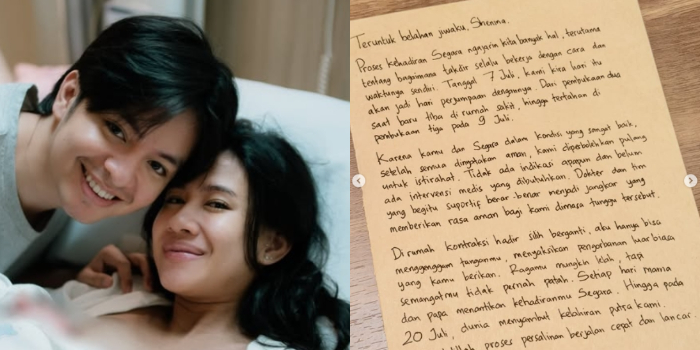 Teruntuk belahan jiwaku, Shenina.
Proses kehadiran Segara ngajarin kita banyak hal, terutama
tentang bagaimana takdir selalu bekerja dengan cara dan
waktunya sendiri. Tanggal 7 Juli, kami kira hari itu
akan jadi hari perjumpaan dengannya. Dari pembukaan dua
saat baru tiba di rumah sakit, hingga tertahan di
pembukaan tiga pada 9 Juli.
Karena kamu dan Segara dalam kondisi yang sangat baik,
setelah semua dinyatakan aman, kami diperbolehkan pulang
untuk istirahat. Tidak ada indikasi apapun dan belum
ada intervensi medis yang dibutuhkan. Dokter dan tim
yang begitu suportif benar-benar menjadi jangkar yang
memberikan rasa aman bagi kami dimasa tunggu tersebut.
Dirumah kontraksi hadir silih berganti, aku hanya bisa
menggenggam tanganmu, menyaksikan pengorbanan luar biasa
yang kamu berikan. Ragamu mungkin lelah, tapi
semangatmu tidak pernah patah. Setiap hari mama
dan papa menantikan kehadiranmu Segara. Hingga pada
20 Juli, dunia menyambut kelahiran putra kami.
proses persalinan berjalan cepat dan lancar.